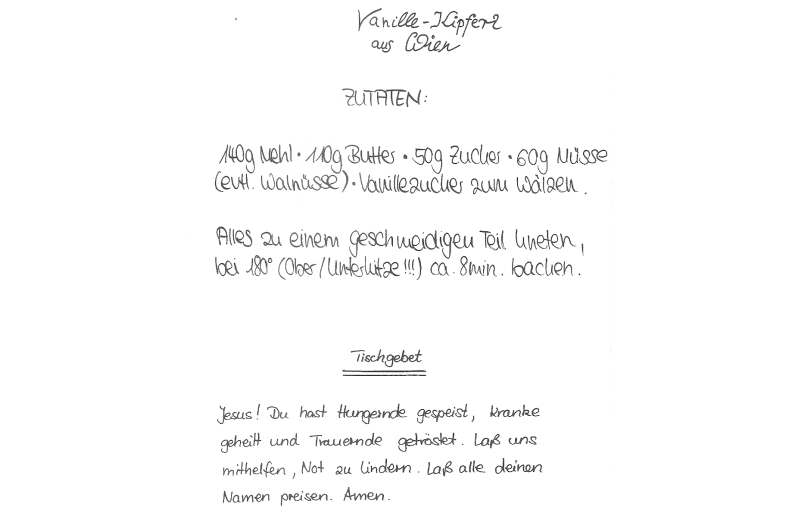 Vanille-Kipferl
aus Wien
ZUTATEN:
140g Mehl · 110g Butter · 50g Zucker · 60g Nüsse
(evtl. Walnüsse) · Vanillezucker zum Wälzen.
Alles zu einem geschmeidigen Teil kneten,
bei 180° (Ober/Unterhitze!!!) ca. 8min. backen.
Tischgebet
Jesus! Du hast Hungernde gespeist, Kranke
geheilt und Trauernde getröstet. Laß uns
mithelfen, Not zu lindern. Laß alle deinen
Namen preisen. Amen.